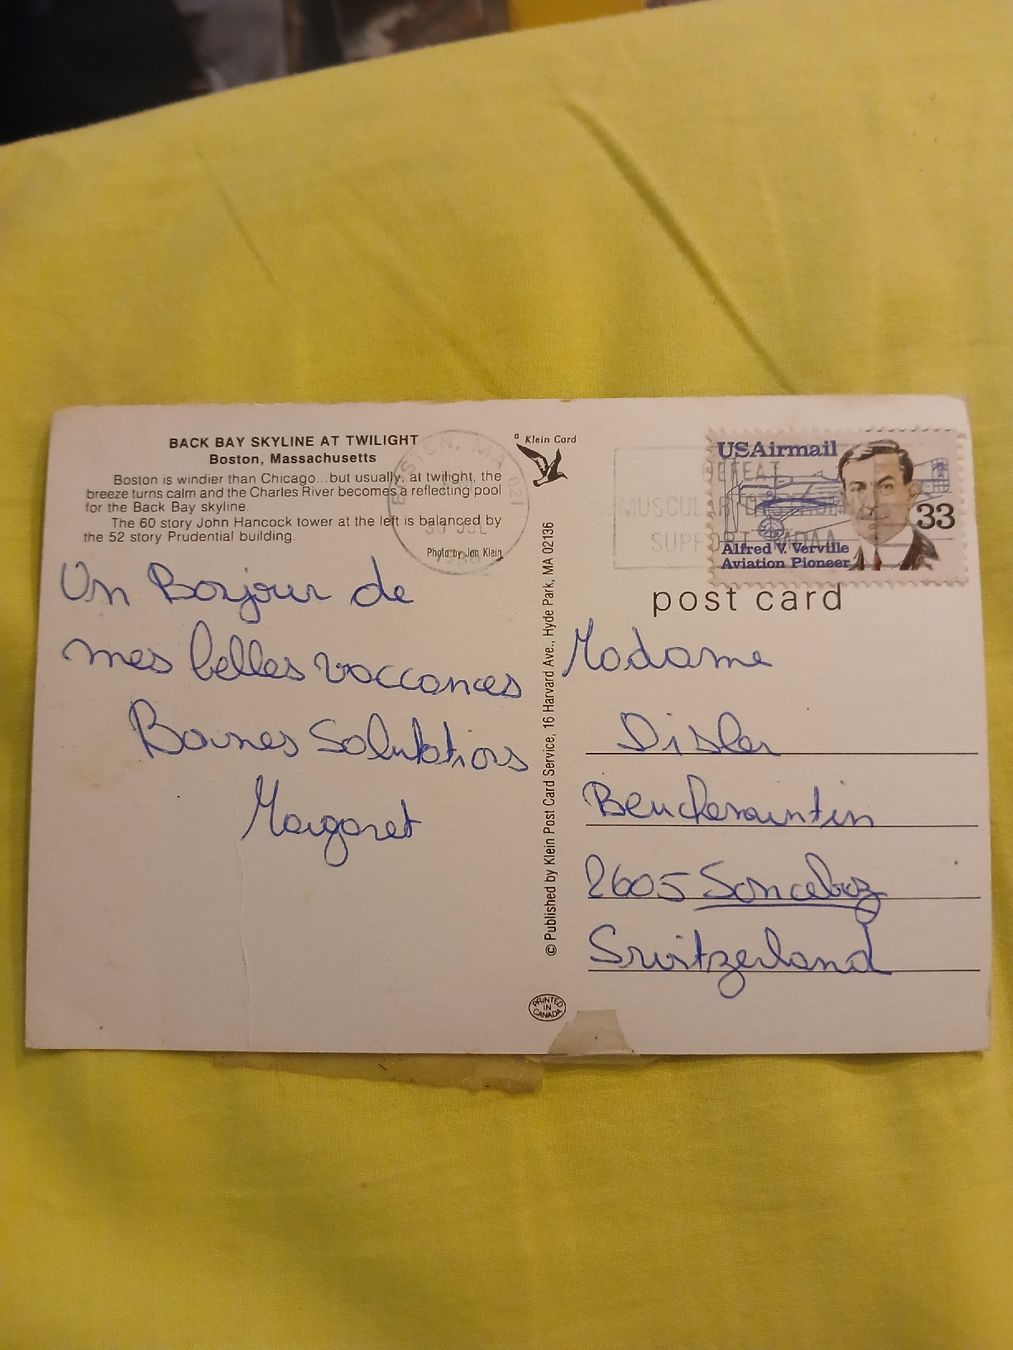 BACK BAY SKYLINE AT TWILIGHT
Boston, Massachusetts
Boston is windier than Chicago...but usually, at twilight, the
breeze turns calm and the Charles River becomes a reflecting pool
for the Back Bay skyline.
The 60 story John Hancock tower at the left is balanced by
the 52 story Prudential building.
Photo by Jon Klein
BOSTON, MA 021
30 JUL
a Klein Card
DEFEAT
MUSCULAR DYSTROPHY
SUPPORT MDAA
USAirmail
33
Alfred V. Verville
Aviation Pioneer
post card
Un Bonjour de
mes belles vaccances
Bonnes Salutations
Margaret
© Published by Klein Post Card Service, 16 Harvard Ave., Hyde Park, MA 02136
Madame
Disler
2605 Sonceboz
Switzerland
PRINTED
IN
CANADA